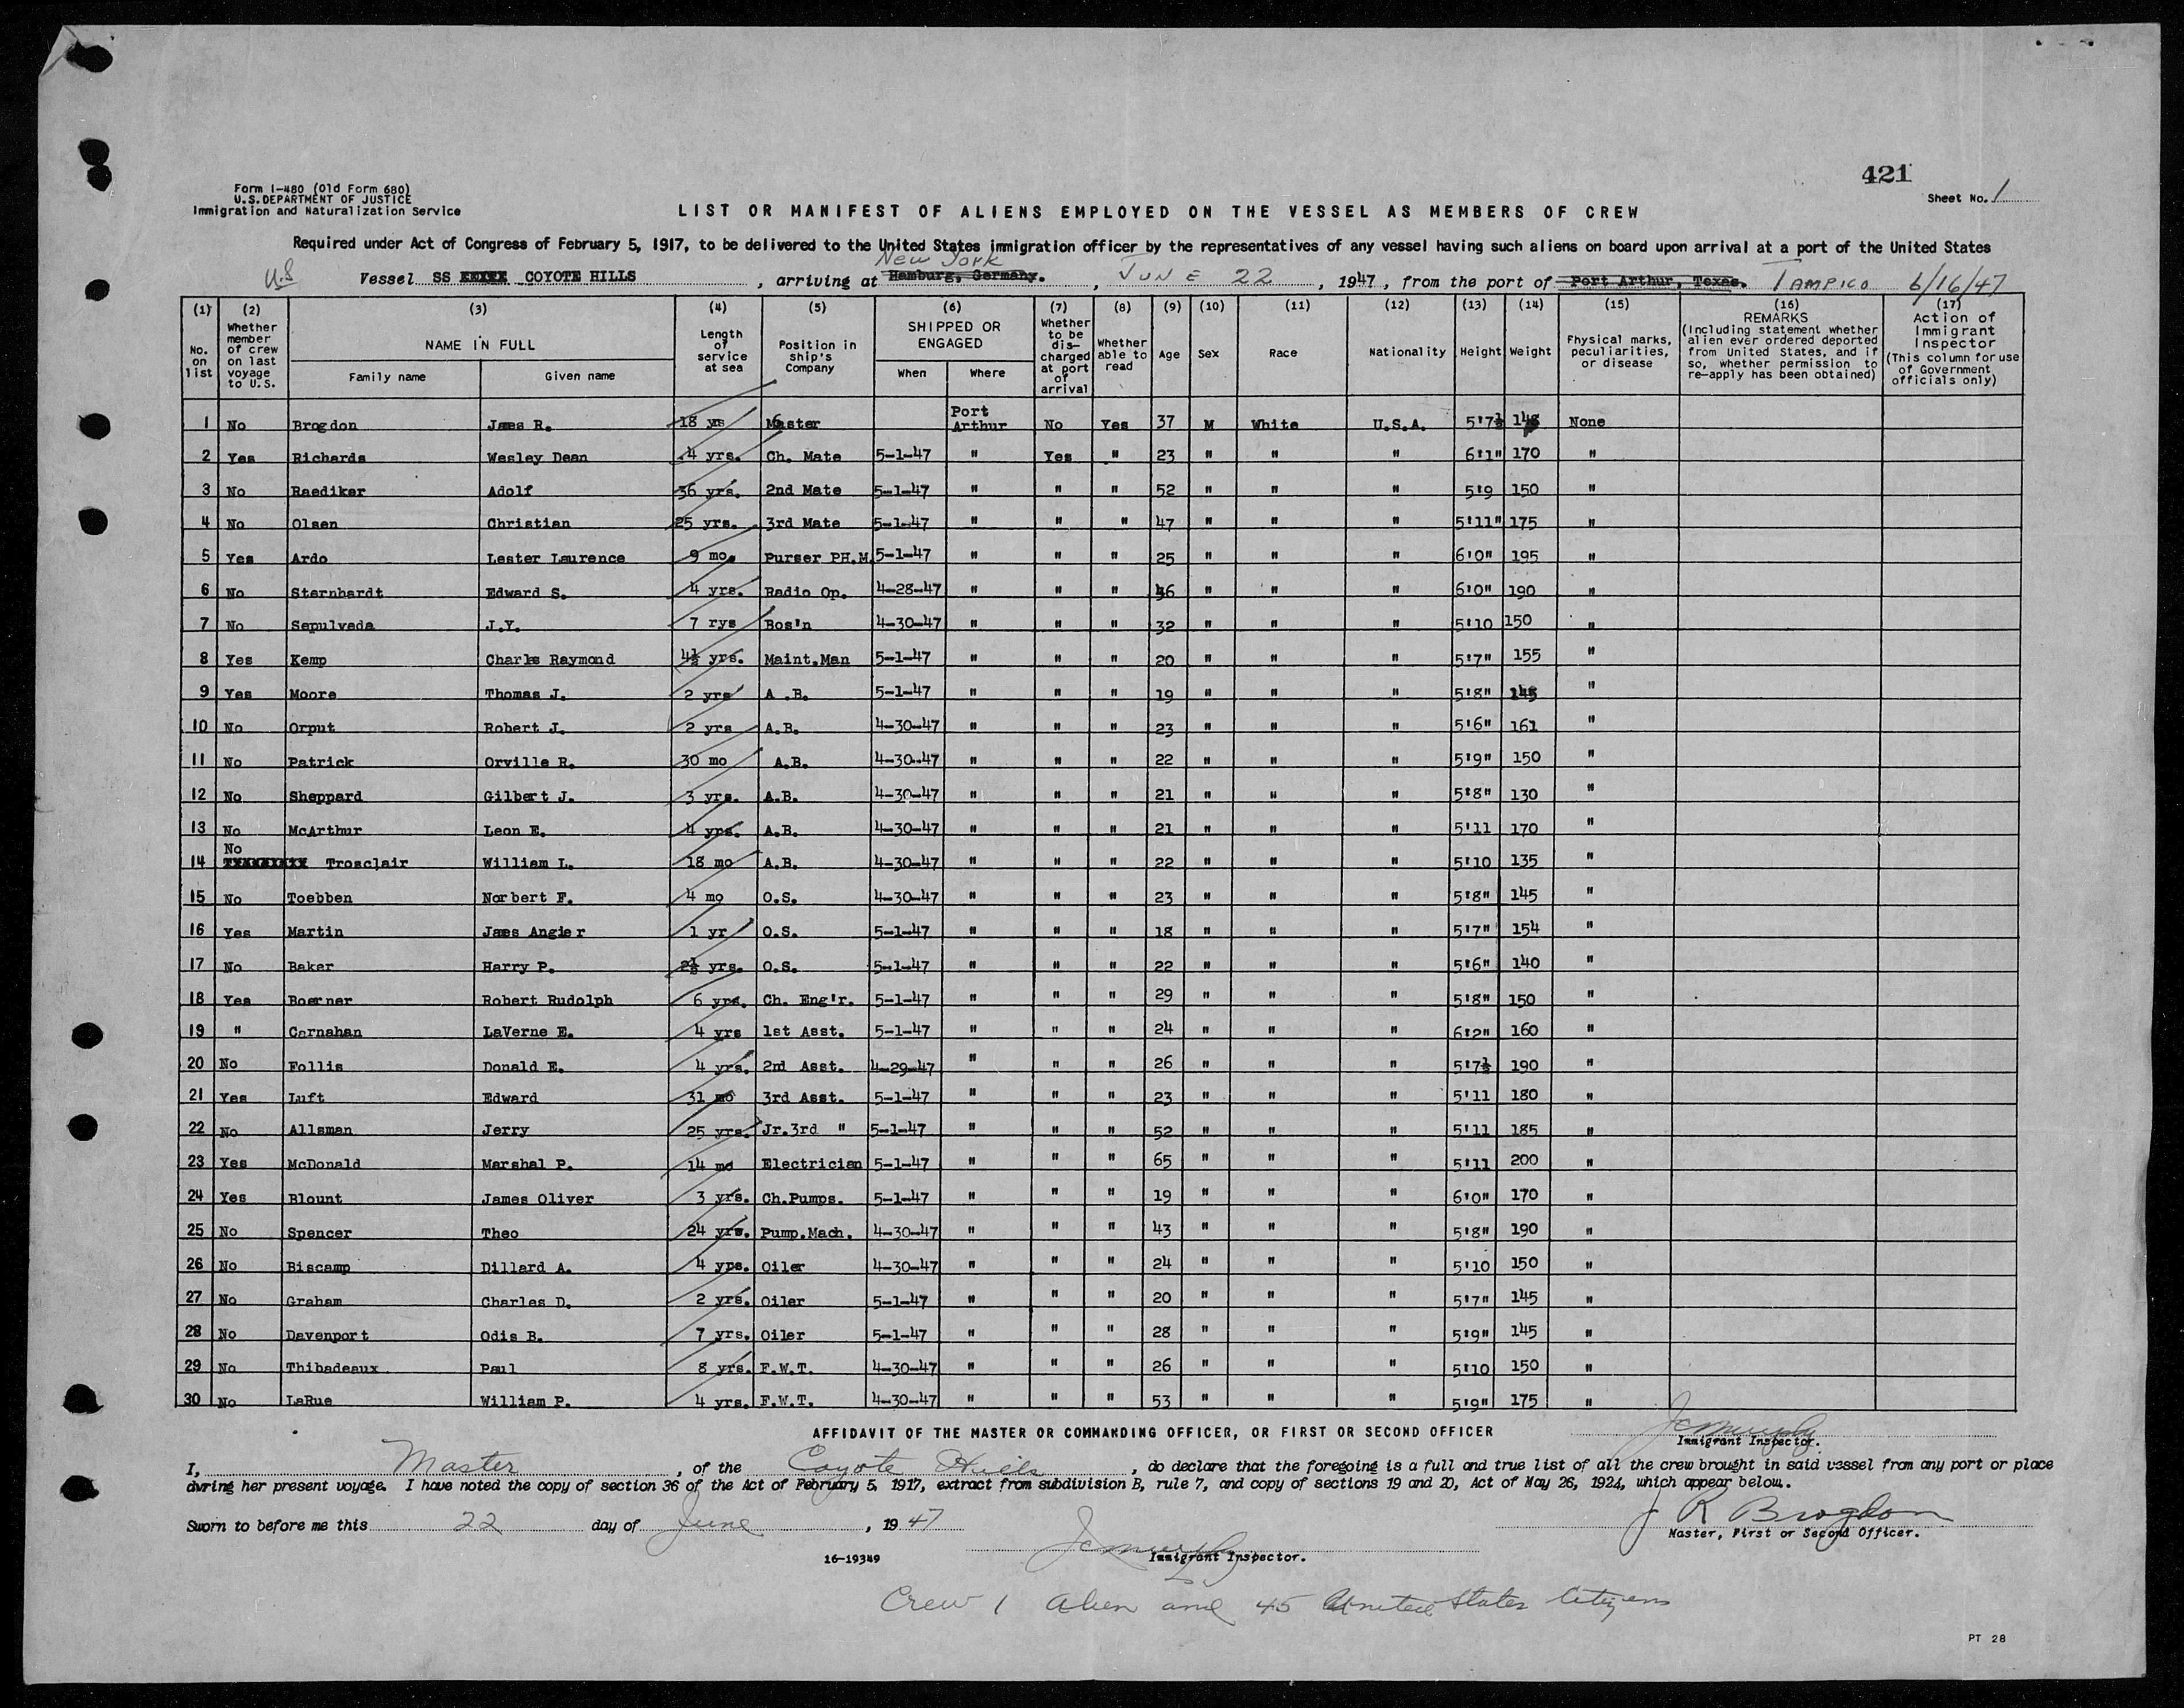 421
Form I-480 (Old Form 680)
U.S. DEPARTMENT OF JUSTICE
Immigration and Naturalization Service
Sheet No. 1
LIST OR MANIFEST OF ALIENS EMPLOYED ON THE VESSEL AS MEMBERS OF CREW
Required under Act of Congress of February 5, 1917, to be delivered to the United States immigration officer by the representatives of any vessel having such aliens on board upon arrival at a port of the United States
New York
U.S Vessel SS COYOTE HILLS, arriving at Hamburg, Germany., JUNE 22, 1947, from the port of Port Arthur, Texas. TAMPICO 6/16/47
(1) No. on list
(2) Whether member of crew on last voyage to U.S.
(3) NAME IN FULL
Family name Given name
(4) Length of service at sea
(5) Position in ship's Company
(6) SHIPPED OR ENGAGED
When Where
(7) Whether to be discharged at port of arrival
(8) Whether able to read
(9) Age
(10) Sex
(11) Race
(12) Nationality
(13) Height
(14) Weight
(15) Physical marks, peculiarities, or disease
(16) REMARKS (Including statement whether alien ever ordered deported from United States, and if so, whether permission to re-apply has been obtained)
(17) Action of Immigrant Inspector (This column for use of Government officials only)
1 No Brogdon James R. 18 ys Master Port Arthur No Yes 37 M White U.S.A. 5'7½ None
2 Yes Richards Wesley Dean 4 yrs. Ch. Mate 5-1-47 " Yes " 23 " " " 6'1" 170 "
3 No Raediker Adolf 36 yrs. 2nd Mate 5-1-47 " " " 52 " " " 5'9 150 "
4 No Olsen Christian 25 yrs. 3rd Mate 5-1-47 " " " 47 " " " 5'11" 175 "
5 Yes Ardo Lester Laurence 9 mo. Purser PH.M. 5-1-47 " " " 25 " " " 6'0" 195 "
6 No Sternhardt Edward S. 4 yrs. Radio Op. 4-28-47 " " " 46 " " " 6'0" 190 "
7 No Sepulveda J.Y. 7 rys Bos'n 4-30-47 " " " 32 " " " 5'10 150 "
8 Yes Kemp Charle Raymond 4½ yrs. Maint.Man 5-1-47 " " " 20 " " " 5'7" 155 "
9 Yes Moore Thomas J. 2 yrs A .B. 5-1-47 " " " 19 " " " 5'8" 145 "
10 No Orput Robert J. 2 yrs A.B. 4-30-47 " " " 23 " " " 5'6" 161 "
11 No Patrick Orville R. 30 mo A.B. 4-30-47 " " " 22 " " " 5'9" 150 "
12 No Sheppard Gilbert J. 3 yrs. A.B. 4-30-47 " " " 21 " " " 5'8" 130 "
13 No McArthur Leon E. 4 yrs. A.B. 4-30-47 " " " 21 " " " 5'11 170 "
14 No Trosclair William L. 18 mo A.B. 4-30-47 " " " 22 " " " 5'10 135 "
15 No Toebben Norbert F. 4 mo O.S. 4-30-47 " " " 23 " " " 5'8" 145 "
16 Yes Martin Jaes Angier 1 yr O.S. 5-1-47 " " " 18 " " " 5'7" 154 "
17 No Baker Harry P. 2½ yrs. O.S. 5-1-47 " " " 22 " " " 5'6" 140 "
18 Yes Boerner Robert Rudolph 6 yrs. Ch. Eng'r. 5-1-47 " " " 29 " " " 5'8" 150 "
19 " Carnahan LaVerne E. 4 yrs 1st Asst. 5-1-47 " " " 24 " " " 6'2" 160 "
20 No Follis Donald E. 4 yrs. 2nd Asst. 4-29-47 " " " 26 " " " 5'7½ 190 "
21 Yes Luft Edward 31 mo 3rd Asst. 5-1-47 " " " 23 " " " 5'11 180 "
22 No Allsman Jerry 25 yrs. Jr.3rd " 5-1-47 " " " 52 " " " 5'11 185 "
23 Yes McDonald Marshal P. 14 mo Electrician 5-1-47 " " " 65 " " " 5'11 200 "
24 Yes Blount James Oliver 3 yrs. Ch.Pumps. 5-1-47 " " " 19 " " " 6'0" 170 "
25 No Spencer Theo 24 yrs. Pump.Mach. 4-30-47 " " " 43 " " " 5'8" 190 "
26 No Biscamp Dillard A. 4 yrs. Oiler 4-30-47 " " " 24 " " " 5'10 150 "
27 No Graham Charles D. 2 yrs. Oiler 5-1-47 " " " 20 " " " 5'7" 145 "
28 No Davenport Odis B. 7 yrs. Oiler 5-1-47 " " " 28 " " " 5'9" 145 "
29 No Thibadeaux Paul 8 yrs. F.W.T. 4-30-47 " " " 26 " " " 5'10 150 "
30 No LaRue William P. 4 yrs. F.W.T. 4-30-47 " " " 53 " " " 5'9" 175 "
AFFIDAVIT OF THE MASTER OR COMMANDING OFFICER, OR FIRST OR SECOND OFFICER
JCMurphy
Immigrant Inspector.
I, Master, of the Coyote Hills, do declare that the foregoing is a full and true list of all the crew brought in said vessel from any port or place
during her present voyage. I have noted the copy of section 36 of the Act of February 5, 1917, extract from subdivision B, rule 7, and copy of sections 19 and 20, Act of May 26, 1924, which appear below.
J R Brogdon
Sworn to before me this 22 day of June, 1947
Master, First or Second Officer.
JCMurphy
16-19349 Immigrant Inspector.
Crew 1 Alien and 45 United States Citizens
PT 28